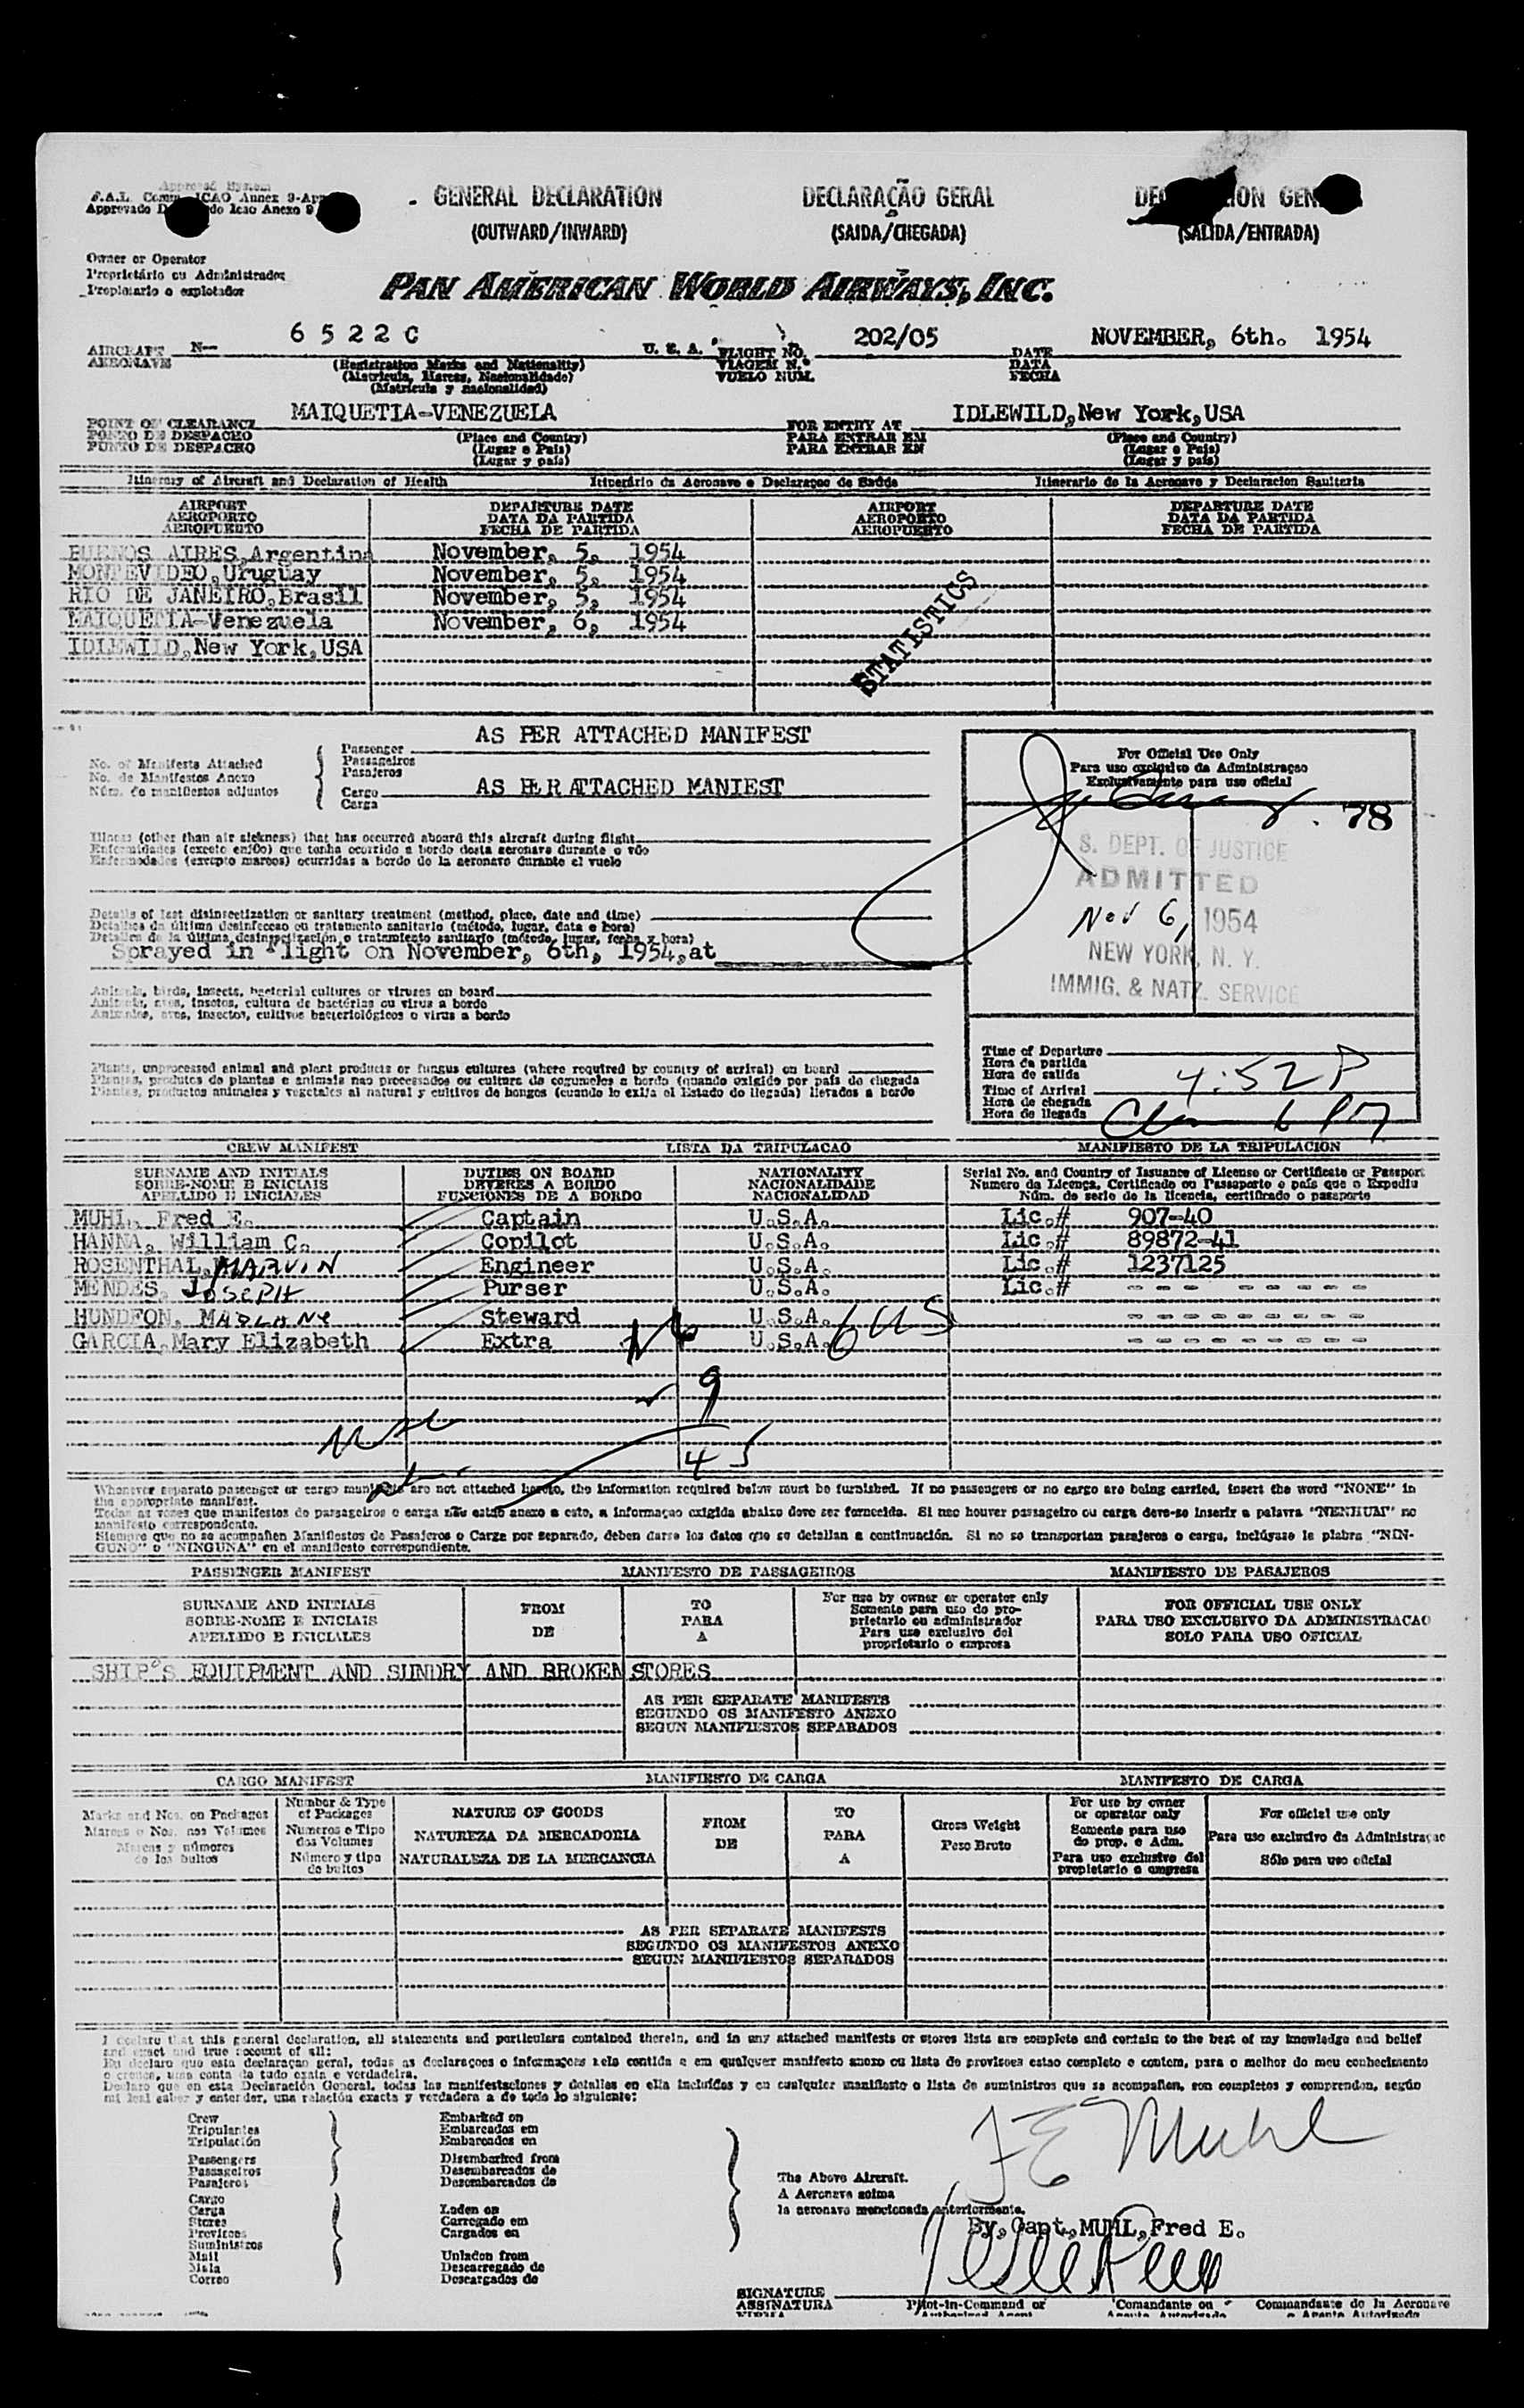 Approved System
F.A.L. Comm. ICAO Annex 9-App
Approvado do Icao Anexo 9
GENERAL DECLARATION
(OUTWARD/INWARD)
DECLARAÇÃO GERAL
(SAIDA/CHEGADA)
(SALIDA/ENTRADA)
Owner or Operator
Proprietário ou Administrador
Propietario o explotador
PAN AMERICAN WORLD AIRWAYS, INC.
AIRCRAFT N— 6522C U. S. A. FLIGHT NO. 202/05 DATE NOVEMBER, 6th. 1954
AERONAVE (Registration Marks and Nationality) VIAGEM N.º DATA
(Matricula, Marcas, Nacionalidade) VUELO NUM. FECHA
(Matricula y nacionalidad)
POINT OF CLEARANCE MAIQUETIA-VENEZUELA FOR ENTRY AT IDLEWILD,New York,USA
PONTO DE DESPACHO (Place and Country) PARA ENTRAR EM (Place and Country)
PUNTO DE DESPACHO (Lugar e País) PARA ENTRAR EN (Lugar e País)
(Lugar y país) (Lugar y país)
Itinerary of Aircraft and Declaration of Health Itinerário da Aeronave e Declaraçao de Saúde Itinerario de la Aeronave y Declaracion Sanitaria
AIRPORT DEPARTURE DATE AIRPORT DEPARTURE DATE
AEROPORTO DATA DA PARTIDA AEROPORTO DATA DA PARTIDA
AEROPUERTO FECHA DE PARTIDA AEROPUERTO FECHA DE PARTIDA
BUENOS AIRES,Argentina November, 5, 1954
MONTEVIDEO,Uruguay November, 5, 1954
RIO DE JANEIRO,Brasil November, 5, 1954
MAIQUETIA-Venezuela November, 6, 1954
IDLEWILD,New York,USA
STATISTICS
No. of Manifests Attached
No. de Manifestos Anexo
Núm. de manifiestos adjuntos
Passenger AS PER ATTACHED MANIFEST
Passageiros
Pasajeros
Cargo AS PER ATTACHED MANIEST
Carga
For Official Use Only
Para uso exclusivo da Administraçao
Exclusivamente para uso oficial
78
S. DEPT. OF JUSTICE
ADMITTED
Nov 6, 1954
NEW YORK, N. Y.
IMMIG. & NATZ. SERVICE
Illness (other than air sickness) that has occurred aboard this aircraft during flight
Enfermidades (exceto enjôo) que tenha ocorrido a bordo desta aeronave durante o vôo
Enfermedades (excepto mareos) ocurridas a bordo de la aeronave durante el vuelo
Details of last disinsectization or sanitary treatment (method, place, date and time)
Detalhes da última desinfeccao ou tratamento sanitario (método, lugar, data e hora)
Detalles de la última desinsectización o tratamiento sanitario (método, lugar, fecha y hora)
Sprayed in flight on November, 6th, 1954,at
Animals, birds, insects, bacterial cultures or viruses on board
Animais, aves, insetos, cultura de bactérias ou virus a bordo
Animales, aves, insectos, cultivos bacteriológicos o virus a bordo
Plants, unprocessed animal and plant products or fungus cultures (where required by country of arrival) on board
Plantas, produtos de plantas e animais nao processados ou cultura de cogumelos a bordo (quando exigido por país de chegada
Plantas, productos animales y vegetales al natural y cultivos de hongos (cuando lo exija el Estado de llegada) llevados a bordo
Time of Departure
Hora da partida
Hora de salida
4:52 P
Time of Arrival
Hora de chegada
Hora de llegada
6 PM
CREW MANIFEST LISTA DA TRIPULACAO MANIFIESTO DE LA TRIPULACION
SURNAME AND INITIALS DUTIES ON BOARD NATIONALITY Serial No. and Country of Issuance of License or Certificate or Passport
SOBRE-NOME E INICIAIS DEVERES A BORDO NACIONALIDADE Numero da Licença, Certificado ou Passaporte e país que o Expediu
APELLIDO E INICIALES FUNCIONES DE A BORDO NACIONALIDAD Núm. de serie de la licencia, certificado o pasaporte
MUHL, Fred E. Captain U.S.A. Lic.# 907-40
HANNA, William C. Copilot U.S.A. Lic.# 89872-41
ROSENTHAL, MARVIN Engineer U.S.A. Lic.# 1237125
MENDES, JOSEPH Purser U.S.A. Lic.# - - - - - - - -
HUNDFON, MADLANY Steward U.S.A. - - - - - - - - -
GARCIA,Mary Elizabeth Extra U.S.A. 6 US - - - - - - - - -
9
45
Whenever separate passenger or cargo manifests are not attached hereto, the information required below must be furnished. If no passengers or no cargo are being carried, insert the word "NONE" in
the appropriate manifest.
Todas as vezes que manifestos de passageiros e carga não estão anexo a esto, a informaçao exigida abaixo deve ser fornecida. Si nao houver passageiro ou carga deve-se inserir a palavra "NENHUM" no
manifesto correspondente.
Siempre que no se acompañen Manifiestos de Pasajeros o Carga por separado, deben darse los datos que se detallan a continuación. Si no se transportan pasajeros o carga, inclúyase la plabra "NIN-
GUNO" o "NINGUNA" en el manifiesto correspondiente.
PASSENGER MANIFEST MANIFESTO DE PASSAGEIROS MANIFIESTO DE PASAJEROS
SURNAME AND INITIALS
SOBRE-NOME E INICIAIS
APELLIDO E INICIALES
FROM
DE
TO
PARA
A
For use by owner or operator only
Somente para uso do pro-
prietario ou administrador
Para uso exclusivo del
propietario o empresa
FOR OFFICIAL USE ONLY
PARA USO EXCLUSIVO DA ADMINISTRACAO
SOLO PARA USO OFICIAL
SHIP'S EQUIPMENT AND SUNDRY AND BROKEN STORES
AS PER SEPARATE MANIFESTS
SEGUNDO OS MANIFESTO ANEXO
SEGUN MANIFIESTOS SEPARADOS
CARGO MANIFEST MANIFIESTO DE CARGA MANIFESTO DE CARGA
Marks and Nos. on Packages
Marcas e Nos. nos Volumes
Marcas y números
de los bultos
Number & Type
of Packages
Numeros e Tipo
dos Volumes
Número y tipo
de bultos
NATURE OF GOODS
NATUREZA DA MERCADORIA
NATURALEZA DE LA MERCANCIA
FROM
DE
TO
PARA
A
Gross Weight
Peso Bruto
For use by owner
or operator only
Somente para uso
do prop. e Adm.
Para uso exclusivo del
propietario o empresa
For official use only
Para uso exclusivo da Administraçao
Sólo para uso oficial
AS PER SEPARATE MANIFESTS
SEGUNDO OS MANIFESTOS ANEXO
SEGUN MANIFIESTOS SEPARADOS
I declare that this general declaration, all statements and particulars contained therein, and in any attached manifests or stores lists are complete and contain to the best of my knowledge and belief
and exact and true account of all:
Eu declaro que esta declaraçao geral, todas as declaraçoes e informaçoes nela contida e em qualquer manifesto anexo ou lista de provisoes estao completo e contem, para o melhor do meu conhecimento
e crença, uma conta de tudo exata e verdadeira.
Declaro que en esta Declaración General, todas las manifestaciones y detalles en ella incluídos y en cualquier manifiesto o lista de suministros que se acompañen, son completos y comprenden, según
mi leal saber y entender, una relación exacta y verdadera de todo lo siguiente:
Crew
Tripulantes
Tripulación
Passengers
Passageiros
Pasajeros
Cargo
Carga
Stores
Previsoes
Suministros
Mail
Mala
Correo
Embarked on
Embarcados em
Embarcados en
Disembarked from
Desembarcados de
Desembarcados de
Laden on
Carregado em
Cargados en
Unladen from
Descarregado de
Descargados de
The Above Aircraft.
A Aeronave acima
la aeronave mencionada anteriormente.
F E Muhl
By, Capt, MUHL, Fred E.
SIGNATURE
ASSINATURA
FIRMA
Pilot-in-Command or
Authorized Agent
Comandante ou
Agente Autorizado
Commandante de la Aeronave
o Agente Autorizado